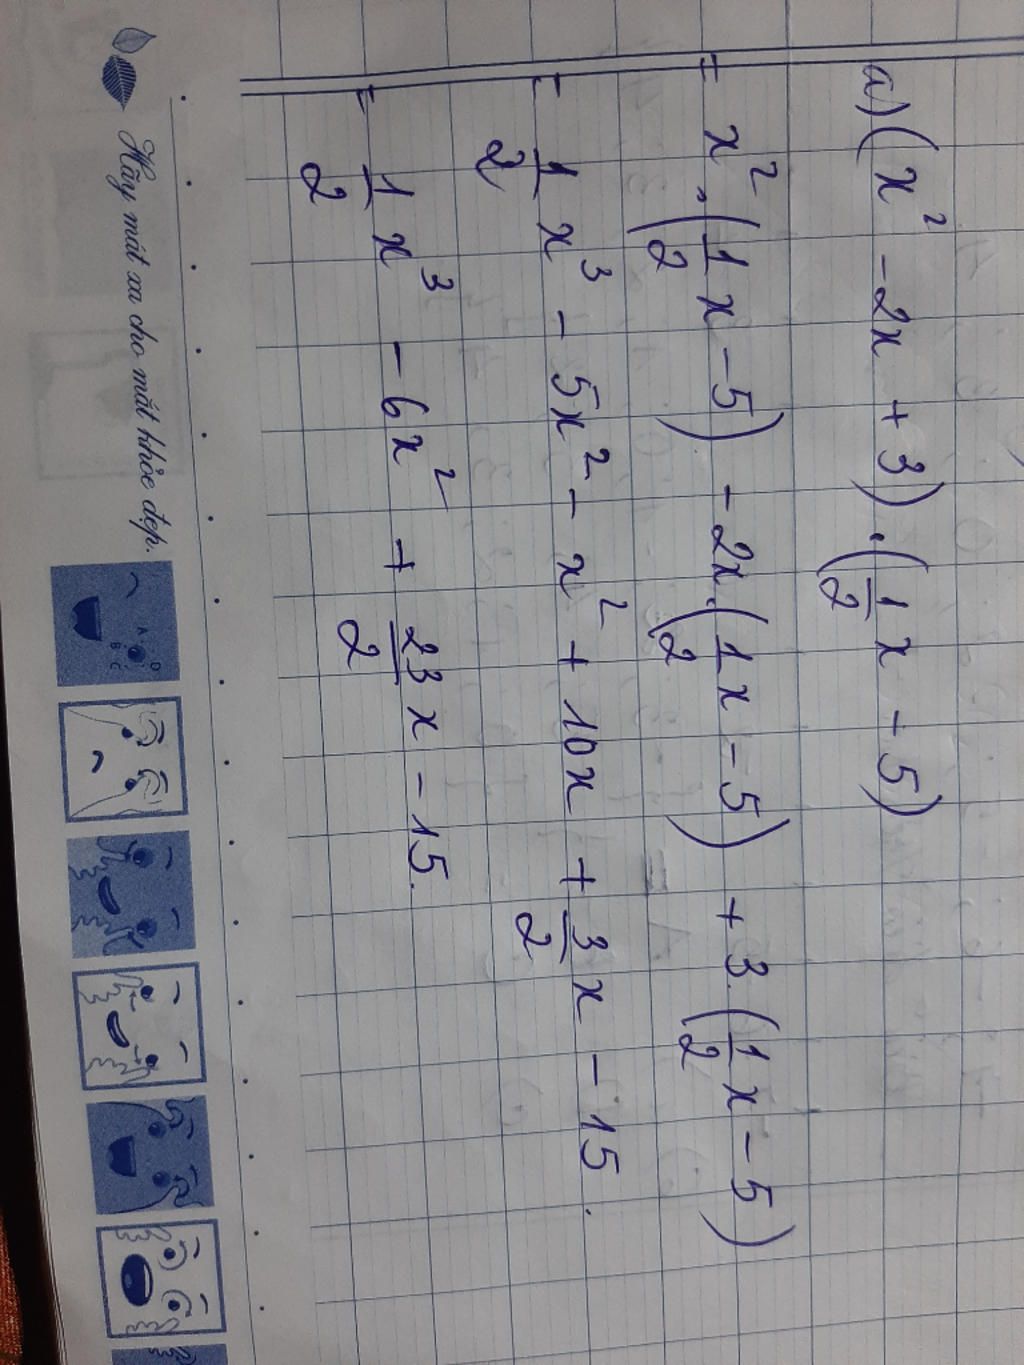 a) (x² - 2x + 3) . (1/2 x - 5)
= x² . (1/2 x - 5) - 2x . (1/2 x - 5) + 3 . (1/2 x - 5)
= 1/2 x³ - 5x² - x² + 10x + 3/2 x - 15.
= 1/2 x³ - 6x² + 23/2 x - 15.
Hãy mát xa cho mắt khỏe đẹp.